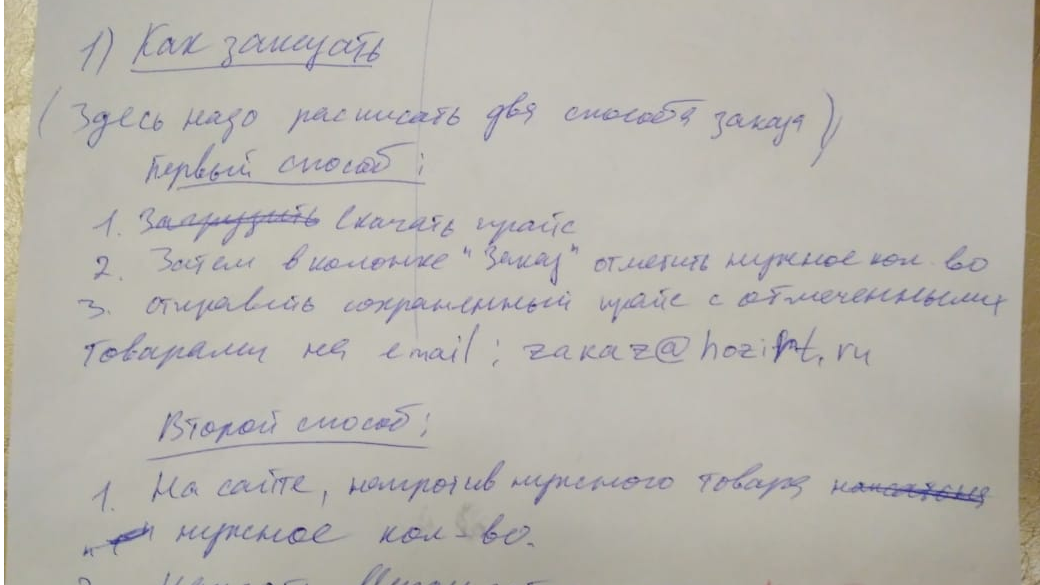 1) Как заказать
(Здесь надо расписать два способа заказа)
Первый способ:
1. Загрузить Скачать прайс
2. Затем в колонке "Заказ" отметить нужное кол-во
3. отправить сохраненный прайс с отмеченными
товарами на email: zakaz@hozint.ru
Второй способ:
1. На сайте, напротив нужного товара
нужное кол-во.
2.